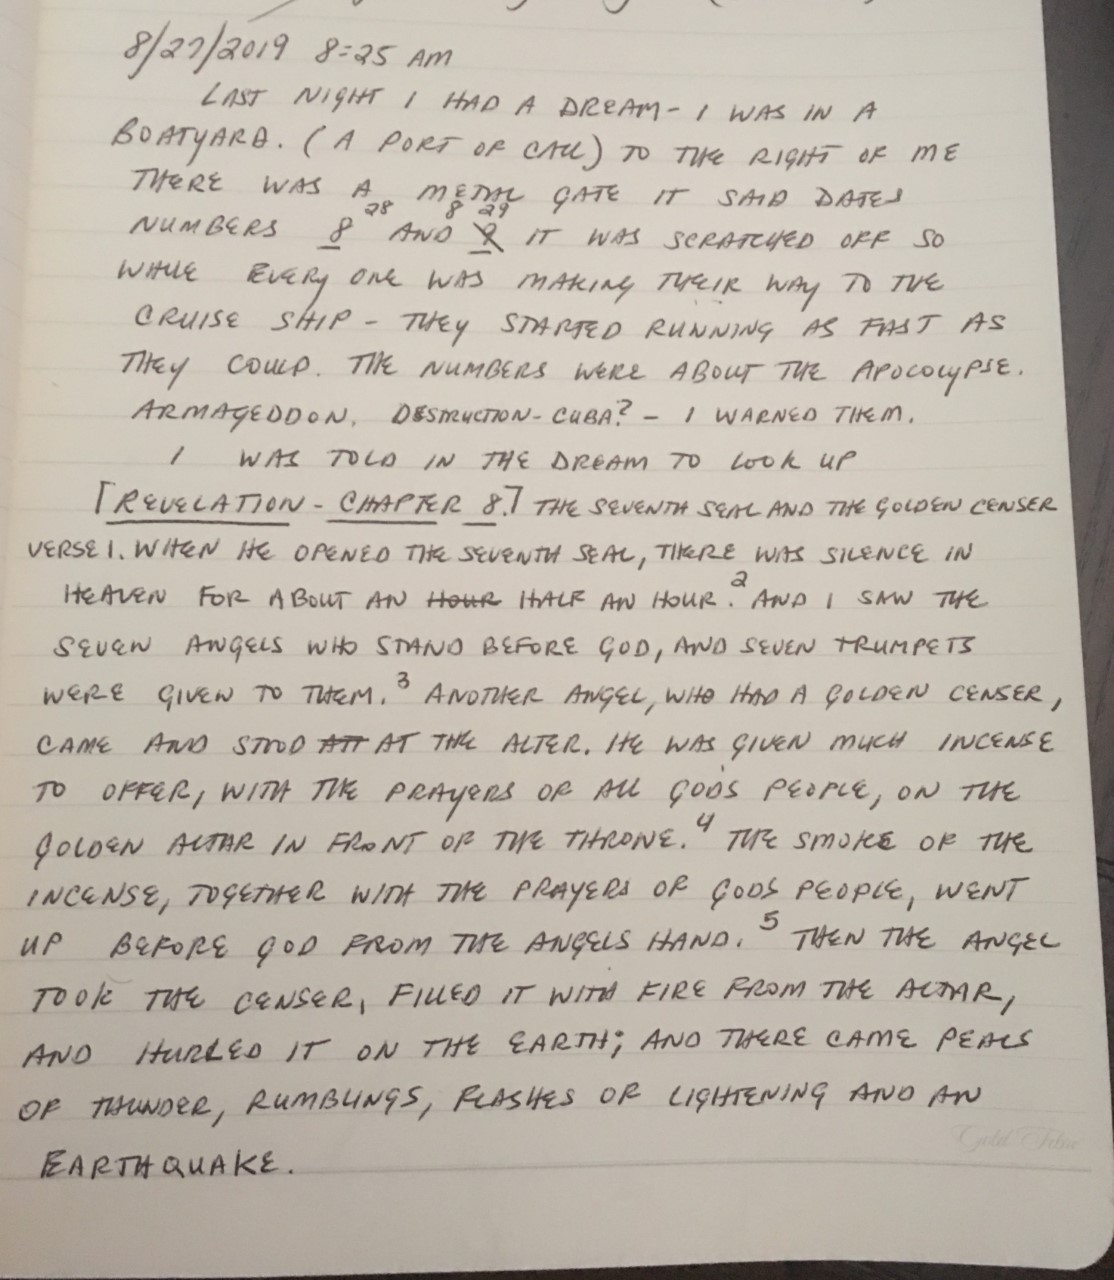 8/27/2019 8:25 AM
LAST NIGHT I HAD A DREAM - I WAS IN A
BOATYARD. (A PORT OF CALL) TO THE RIGHT OF ME
THERE WAS A METAL GATE IT SAID DATES
28 8 29
NUMBERS 8 AND 9 IT WAS SCRATCHED OFF SO
WHILE EVERY ONE WAS MAKING THEIR WAY TO THE
CRUISE SHIP - THEY STARTED RUNNING AS FAST AS
THEY COULD. THE NUMBERS WERE ABOUT THE APOCOLYPSE.
ARMAGEDDON, DESTRUCTION - CUBA? - I WARNED THEM.
I WAS TOLD IN THE DREAM TO LOOK UP
[REVELATION - CHAPTER 8.] THE SEVENTH SEAL AND THE GOLDEN CENSER
VERSE 1. WHEN HE OPENED THE SEVENTH SEAL, THERE WAS SILENCE IN
HEAVEN FOR ABOUT AN HOUR HALF AN HOUR. 2 AND I SAW THE
SEVEN ANGELS WHO STAND BEFORE GOD, AND SEVEN TRUMPETS
WERE GIVEN TO THEM. 3 ANOTHER ANGEL, WHO HAD A GOLDEN CENSER,
CAME AND STOOD ATT AT THE ALTER. HE WAS GIVEN MUCH INCENSE
TO OFFER, WITH THE PRAYERS OF ALL GOD'S PEOPLE, ON THE
GOLDEN ALTAR IN FRONT OF THE THRONE. 4 THE SMOKE OF THE
INCENSE, TOGETHER WITH THE PRAYERS OF GODS PEOPLE, WENT
UP BEFORE GOD FROM THE ANGELS HAND. 5 THEN THE ANGEL
TOOK THE CENSER, FILLED IT WITH FIRE FROM THE ALTAR,
AND HURLED IT ON THE EARTH; AND THERE CAME PEALS
OF THUNDER, RUMBLINGS, FLASHES OF LIGHTENING AND AN
EARTHQUAKE.